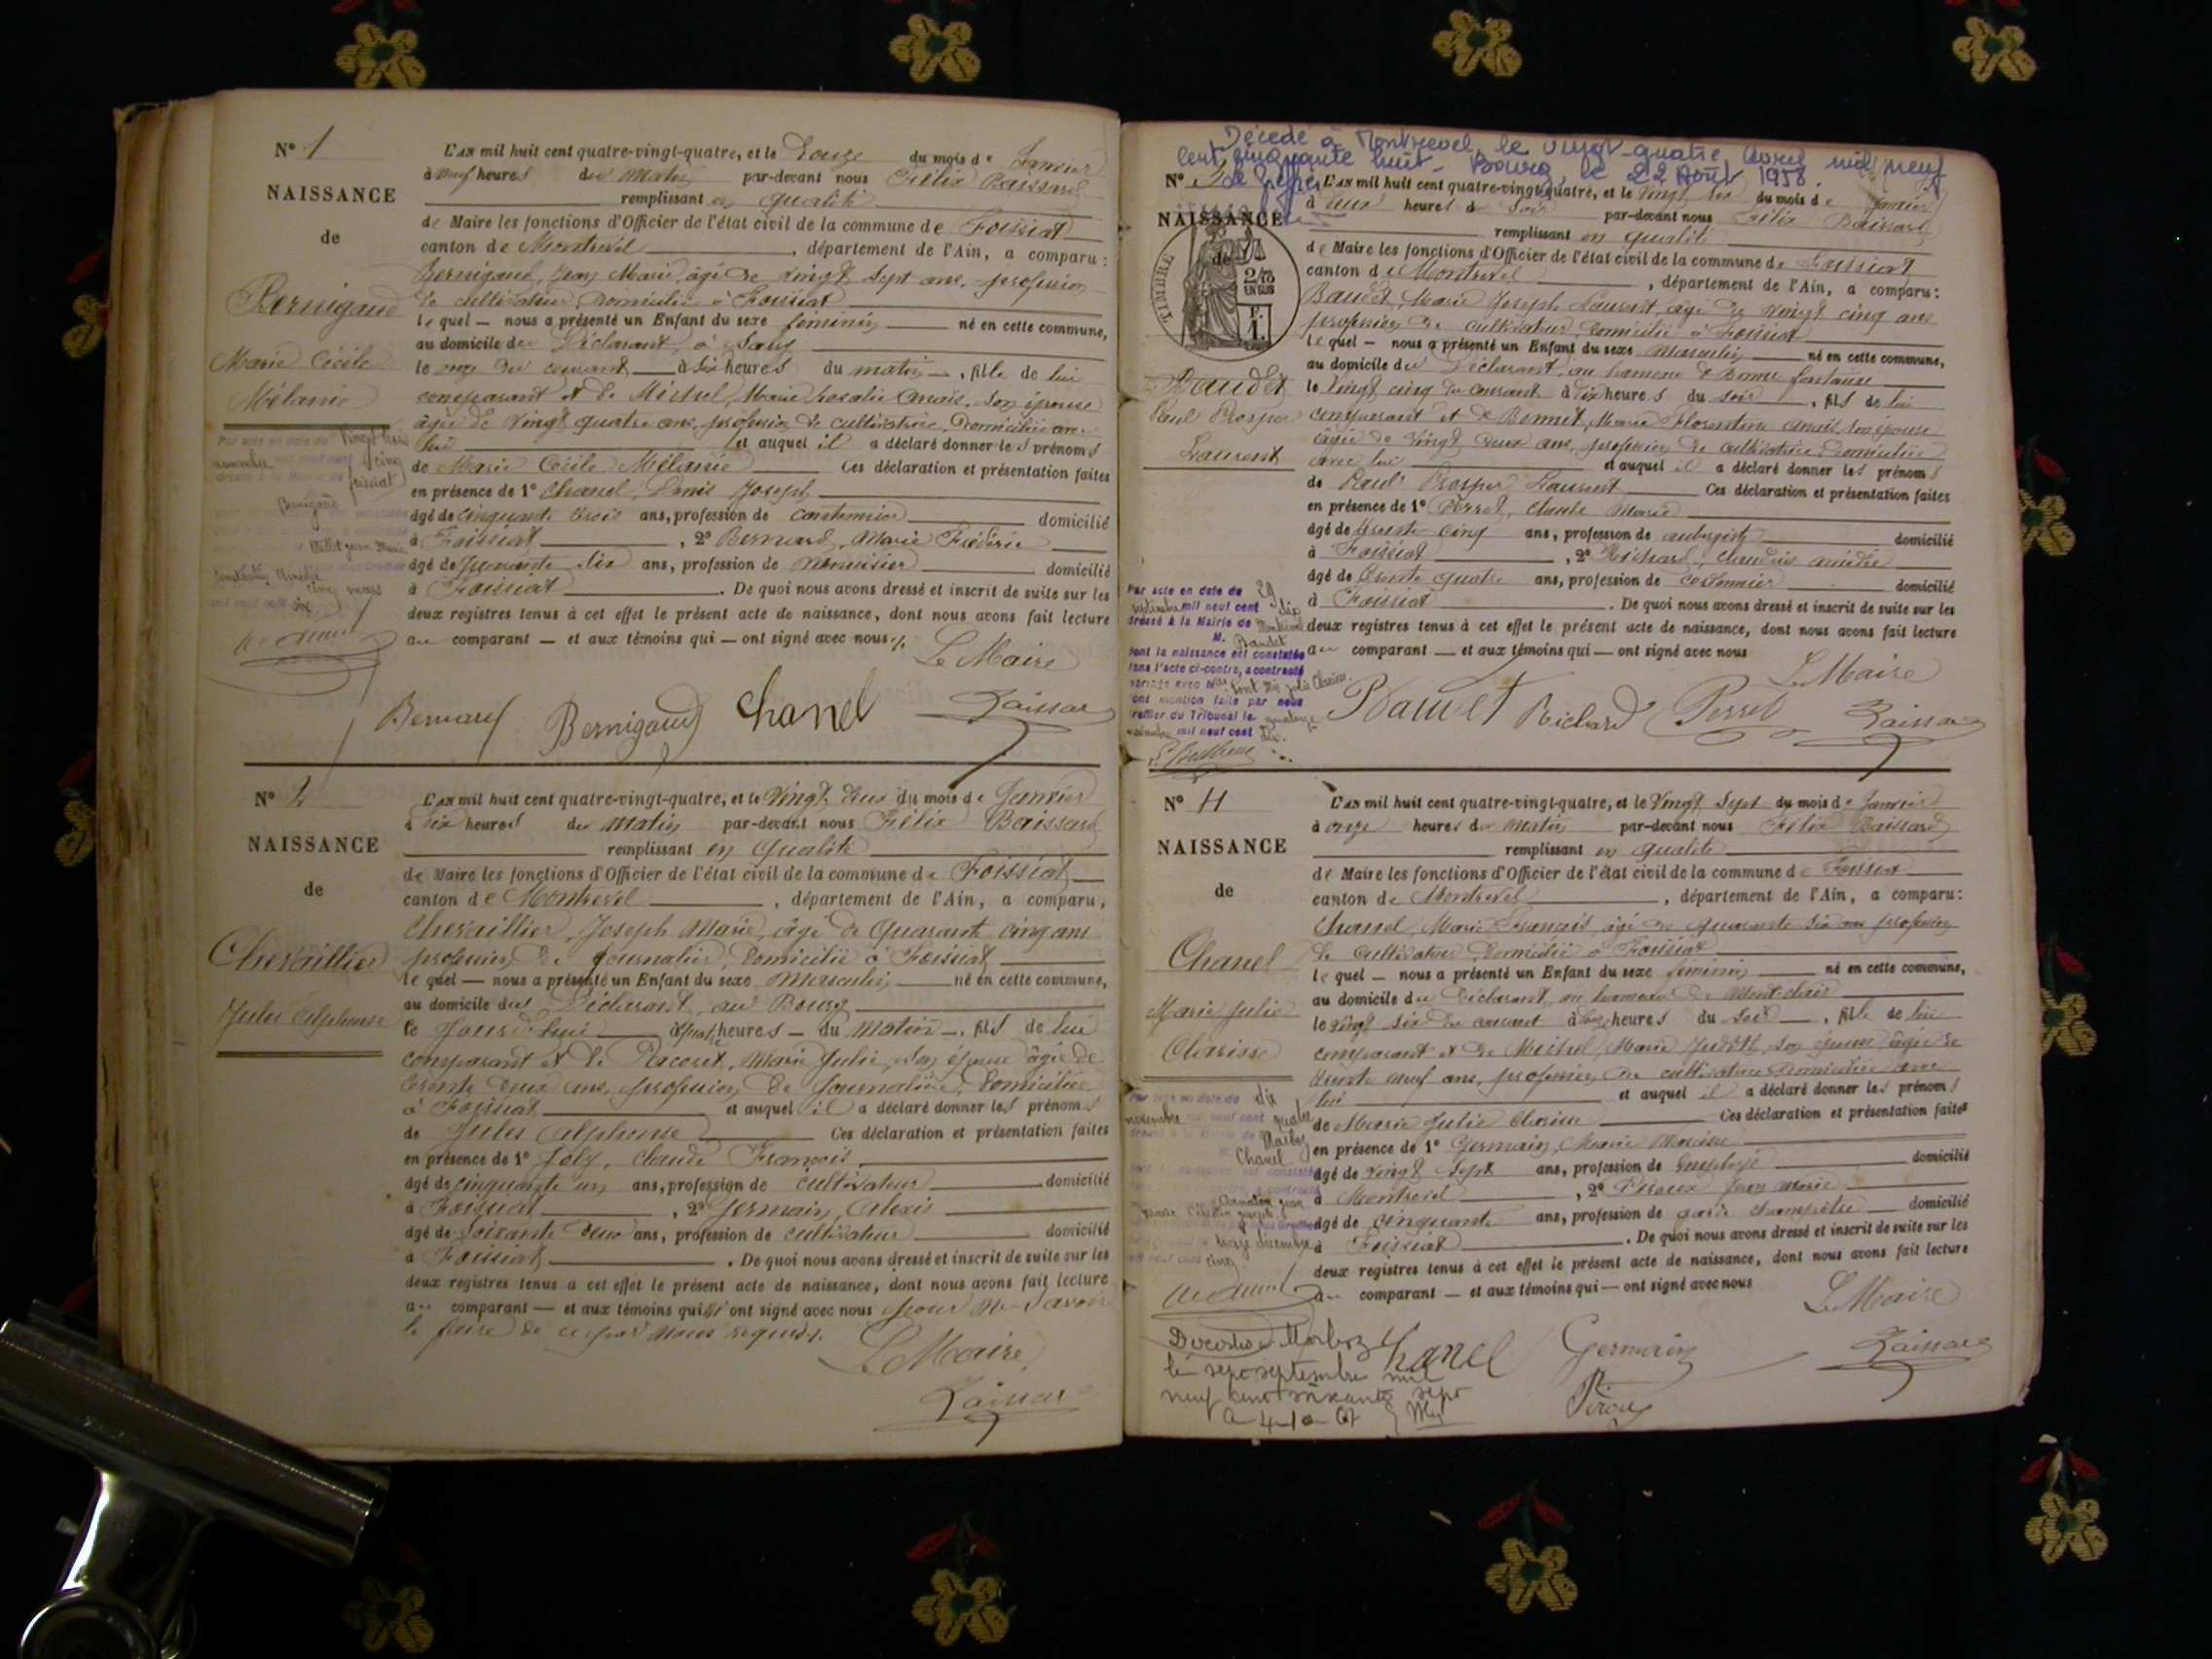 N° 1
NAISSANCE
de
Bernigaud
Marie Cécile
Mélanie
L'AN mil huit cent quatre-vingt-quatre, et le Douze du mois de Janvier
à neuf heures du matin par-devant nous Félix
remplissant en qualité
de Maire les fonctions d'Officier de l'état civil de la commune de Foissiat
canton de Montrevel, département de l'Ain, a comparu :
Bernigaud, Jean Marie, âgé de vingt sept ans, profession
de cultivateur, domicilié à Foissiat
le quel — nous a présenté un Enfant du sexe féminin né en cette commune,
au domicile du Déclarant, à
le onze du courant à six heures du matin, fille de lui
comparant et de Michel, Marie Rosalie Anaïs, son épouse
âgée de vingt quatre ans, profession de cultivatrice, Domiciliée avec
lui et auquel il a déclaré donner les prénoms
de Marie Cécile Mélanie Ces déclaration et présentation faites
en présence de 1° Chanel, Denis Joseph
âgé de cinquante trois ans, profession de cantonnier domicilié
à Foissiat, 2° Bernard, Marie Frédéric
âgé de ans, profession de menuisier domicilié
à Foissiat. De quoi nous avons dressé et inscrit de suite sur les
deux registres tenus à cet effet le présent acte de naissance, dont nous avons fait lecture
au comparant — et aux témoins qui — ont signé avec nous.
Le Maire
Bernard Bernigaud Chanel
N° 2
NAISSANCE
de
Chevaillier
Jules Alphonse
L'AN mil huit cent quatre-vingt-quatre, et le Vingt deux du mois de Janvier
à dix heures du matin par-devant nous Félix
remplissant en qualité
de Maire les fonctions d'Officier de l'état civil de la commune de Foissiat
canton de Montrevel, département de l'Ain, a comparu,
Chevaillier, Joseph Marie, âgé de Quarante cinq ans
profession de journalier, domicilié à Foissiat
le quel — nous a présenté un Enfant du sexe Masculin né en cette commune,
au domicile du Déclarant, au Bourg
le Jourd'hui à heures — du matin —, fils de lui
comparant et de Marie Julie, son épouse âgée de
trente deux ans, profession de journalière, domiciliée
à Foissiat et auquel il a déclaré donner les prénoms
de Jules Alphonse Ces déclaration et présentation faites
en présence de 1° Joly, Claude François
âgé de cinquante un ans, profession de cultivateur domicilié
à Foissiat, 2° Germain, Alexis
âgé de soixante deux ans, profession de cultivateur domicilié
à Foissiat. De quoi nous avons dressé et inscrit de suite sur les
deux registres tenus à cet effet le présent acte de naissance, dont nous avons fait lecture
au comparant — et aux témoins qui n'ont signé avec nous pour ne savoir
le faire de ce par nous requis.
Le Maire
Décédé à Montrevel, le vingt-quatre avril mil neuf
cent cinquante huit - Bourg, le 22 Août 1958.
N° 3
NAISSANCE
de
TIMBRE
Baudet
Paul Prosper
Laurent
L'AN mil huit cent quatre-vingt-quatre, et le vingt six du mois de Janvier
à deux heures du soir par-devant nous Félix
remplissant en qualité
de Maire les fonctions d'Officier de l'état civil de la commune de Foissiat
canton de Montrevel, département de l'Ain, a comparu :
Baudet, Marie Joseph Laurent, âgé de vingt cinq ans
profession de cultivateur domicilié à Foissiat
le quel — nous a présenté un Enfant du sexe Masculin né en cette commune,
au domicile du Déclarant, au hameau de Bonne fontaine
le vingt cinq du courant à dix heures du soir, fils de lui
comparant et de Bonnet, Marie Florentine Anaïs, son épouse
âgée de vingt deux ans, profession de cultivatrice, domiciliée
avec lui et auquel il a déclaré donner les prénoms
de Paul Prosper Laurent Ces déclaration et présentation faites
en présence de 1° Perret, Claude Marie
âgé de trente cinq ans, profession de aubergiste domicilié
à Foissiat, 2° Richard, Claudius Amédée
âgé de trente quatre ans, profession de domicilié
à Foissiat. De quoi nous avons dressé et inscrit de suite sur les
deux registres tenus à cet effet le présent acte de naissance, dont nous avons fait lecture
au comparant — et aux témoins qui — ont signé avec nous
Le Maire
Par acte en date du 29
septembre mil neuf cent dix
dressé à la Mairie de Montrevel
M. Baudet
dont la naissance est constatée
dans l'acte ci-contre, a contracté
mariage avec Mlle
dont mention faite par nous
greffier du Tribunal le quatorze
novembre mil neuf cent dix.
Baudet Richard Perret
N° 4
NAISSANCE
de
Chanel
Marie Julie
Clarisse
L'AN mil huit cent quatre-vingt-quatre, et le Vingt Sept du mois de Janvier
à onze heures du matin par-devant nous Félix
remplissant en qualité
de Maire les fonctions d'Officier de l'état civil de la commune de Foissiat
canton de Montrevel, département de l'Ain, a comparu :
Chanel, Marie François âgé de quarante six ans profession
de cultivateur, domicilié à Foissiat
le quel — nous a présenté un Enfant du sexe féminin né en cette commune,
au domicile du Déclarant, au hameau de
le vingt six du courant à heures du soir, fille de lui
comparant et de Michel, Marie Judith, son épouse, âgée de
trente neuf ans, profession de cultivatrice domiciliée avec
lui et auquel il a déclaré donner les prénoms
de Marie Julie Clarisse Ces déclaration et présentation faites
en présence de 1° Germain, Marie
âgé de vingt sept ans, profession de employé domicilié
à Montrevel, 2° Piroux Jean Marie
âgé de cinquante ans, profession de garde champêtre domicilié
à Foissiat. De quoi nous avons dressé et inscrit de suite sur les
deux registres tenus à cet effet le présent acte de naissance, dont nous avons fait lecture
au comparant — et aux témoins qui — ont signé avec nous
Le Maire
Chanel Germain
Piroux
Décédée à Marboz
le sept septembre mil
neuf cent soixante sept